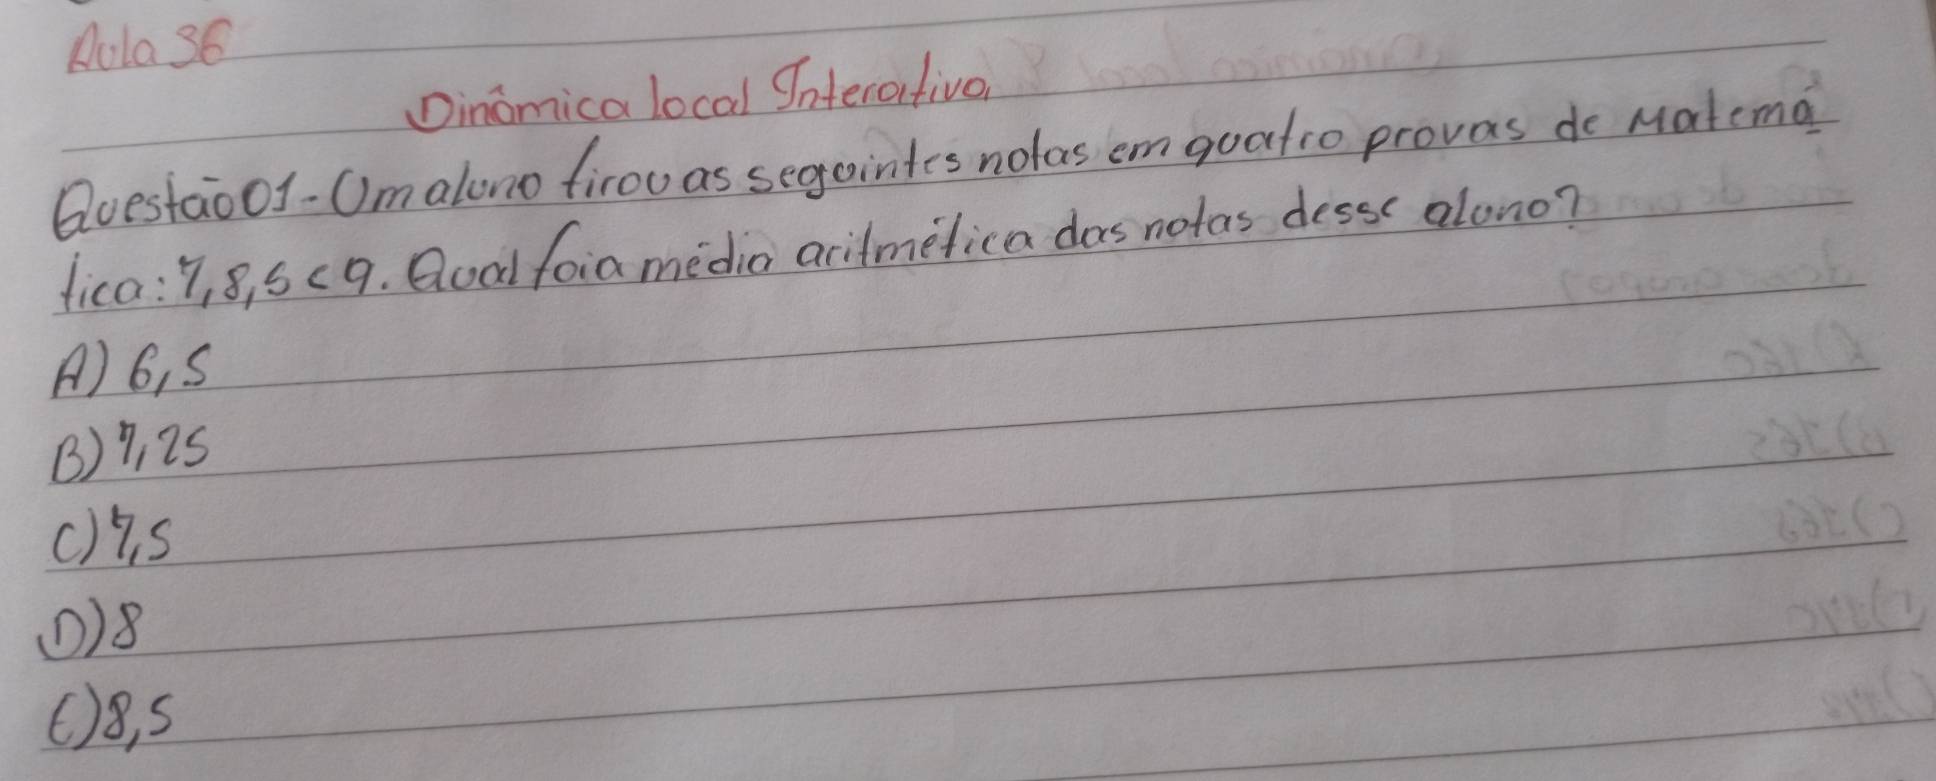 Aula 36
Dinâmica local Interativa
Questão 01 - Um aluno tirou as seguintes notas em quatro provas de Matemá
tica: 7, 8, 5 e 9. Qual foi a média aritmética das notas desse aluno?
A) 6,5
B) 7,25
C) 7,5
D) 8
E) 8,5